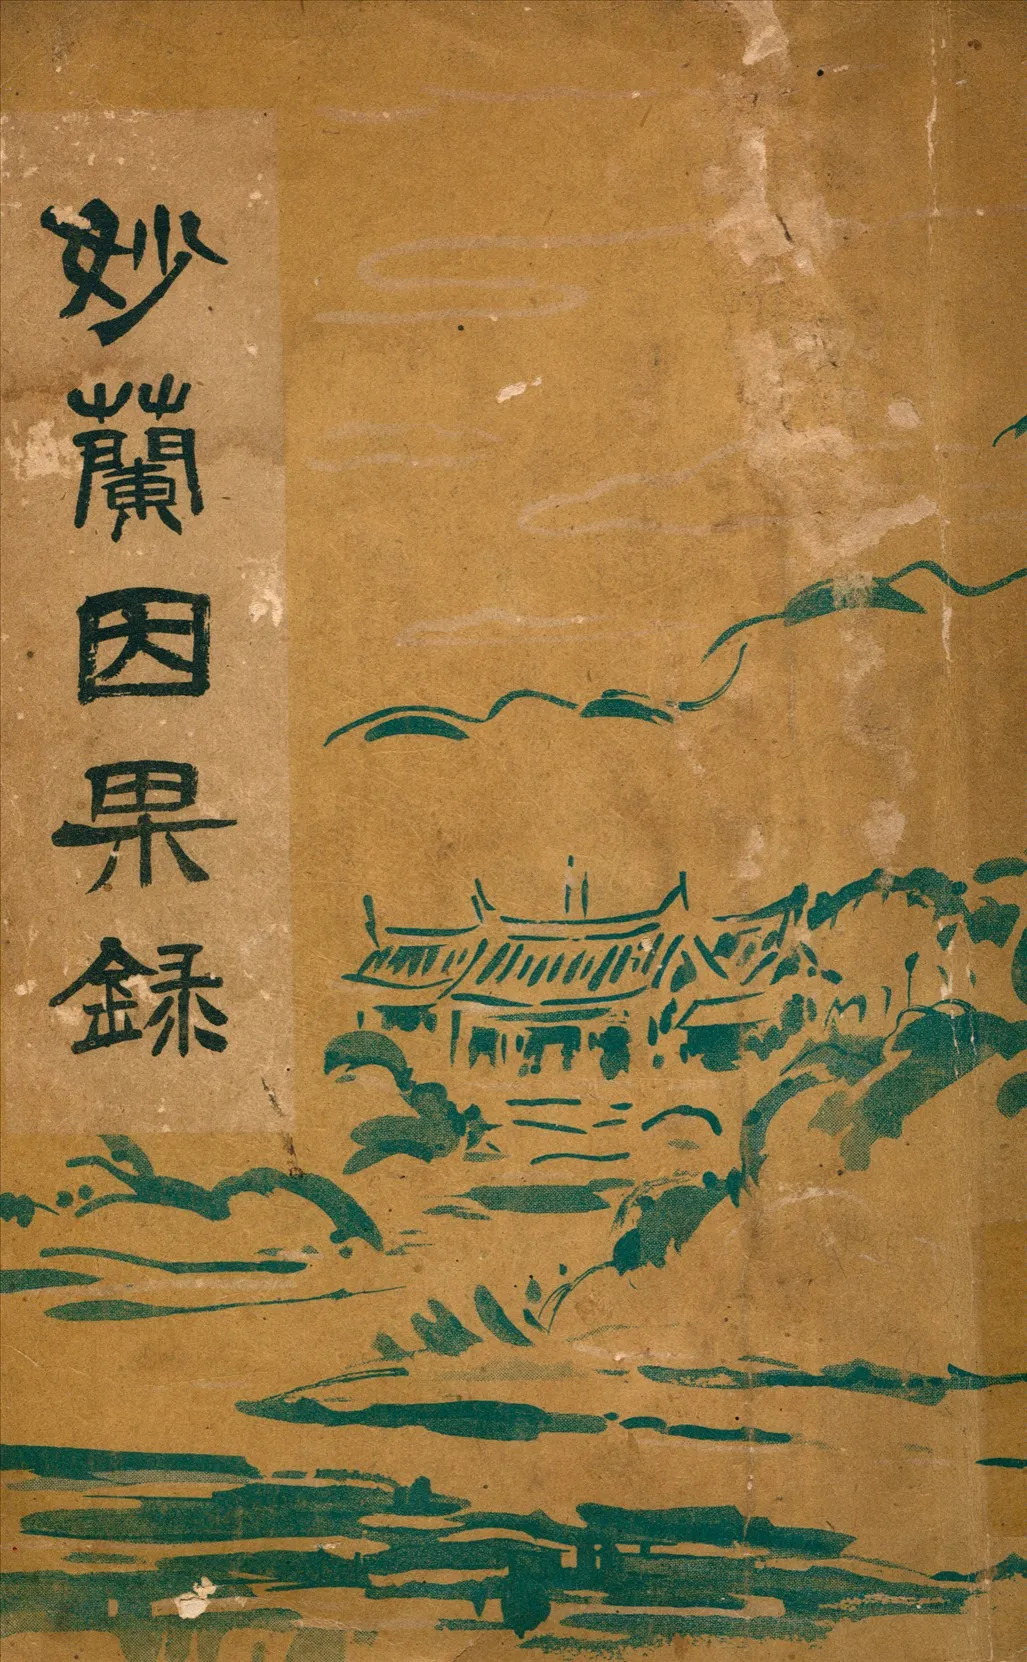 妙蘭因果録